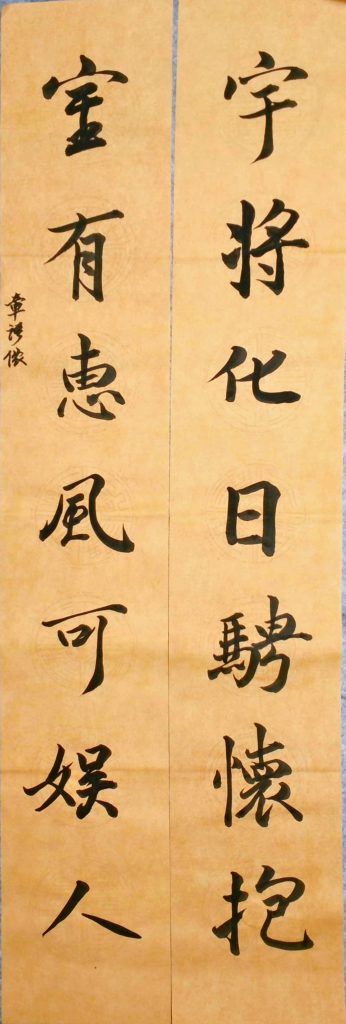 宇将化日騁懷抱
室有惠風可娱人
章